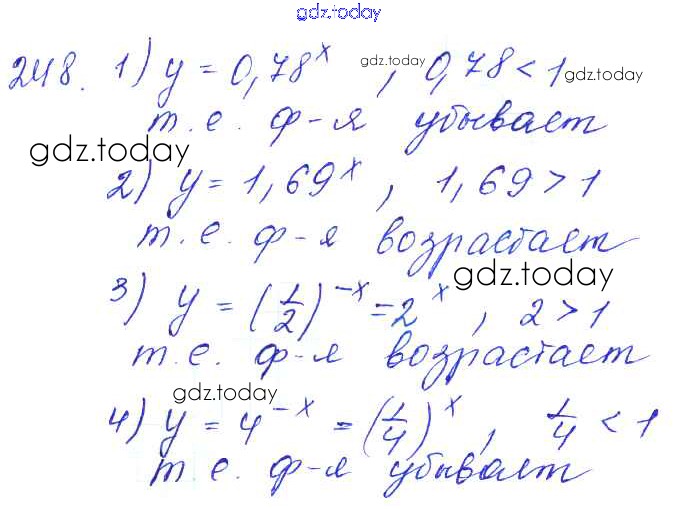 gdz.today
248. 1) y = 0,78^x gdz.today , 0,78 < 1 gdz.today
т.е. ф-я убывает
gdz.today
2) y = 1,69^x , 1,69 > 1
т.е. ф-я возрастает
gdz.today
3) y = (1/2)^-x = 2^x , 2 > 1
т.е. ф-я возрастает
gdz.today
4) y = 4^-x = (1/4)^x , 1/4 < 1
т.е. ф-я убывает